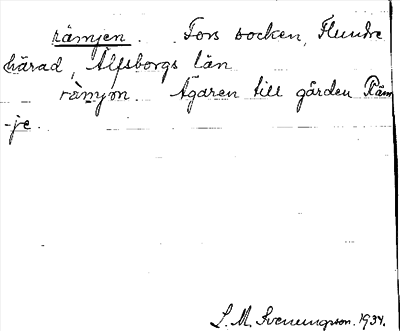 rämjen. Fors socken, Flundre
härad, Älfsborgs län
rämjon. Ägaren till gården Räm
-je.
L. M. Svenungsson. 1934.